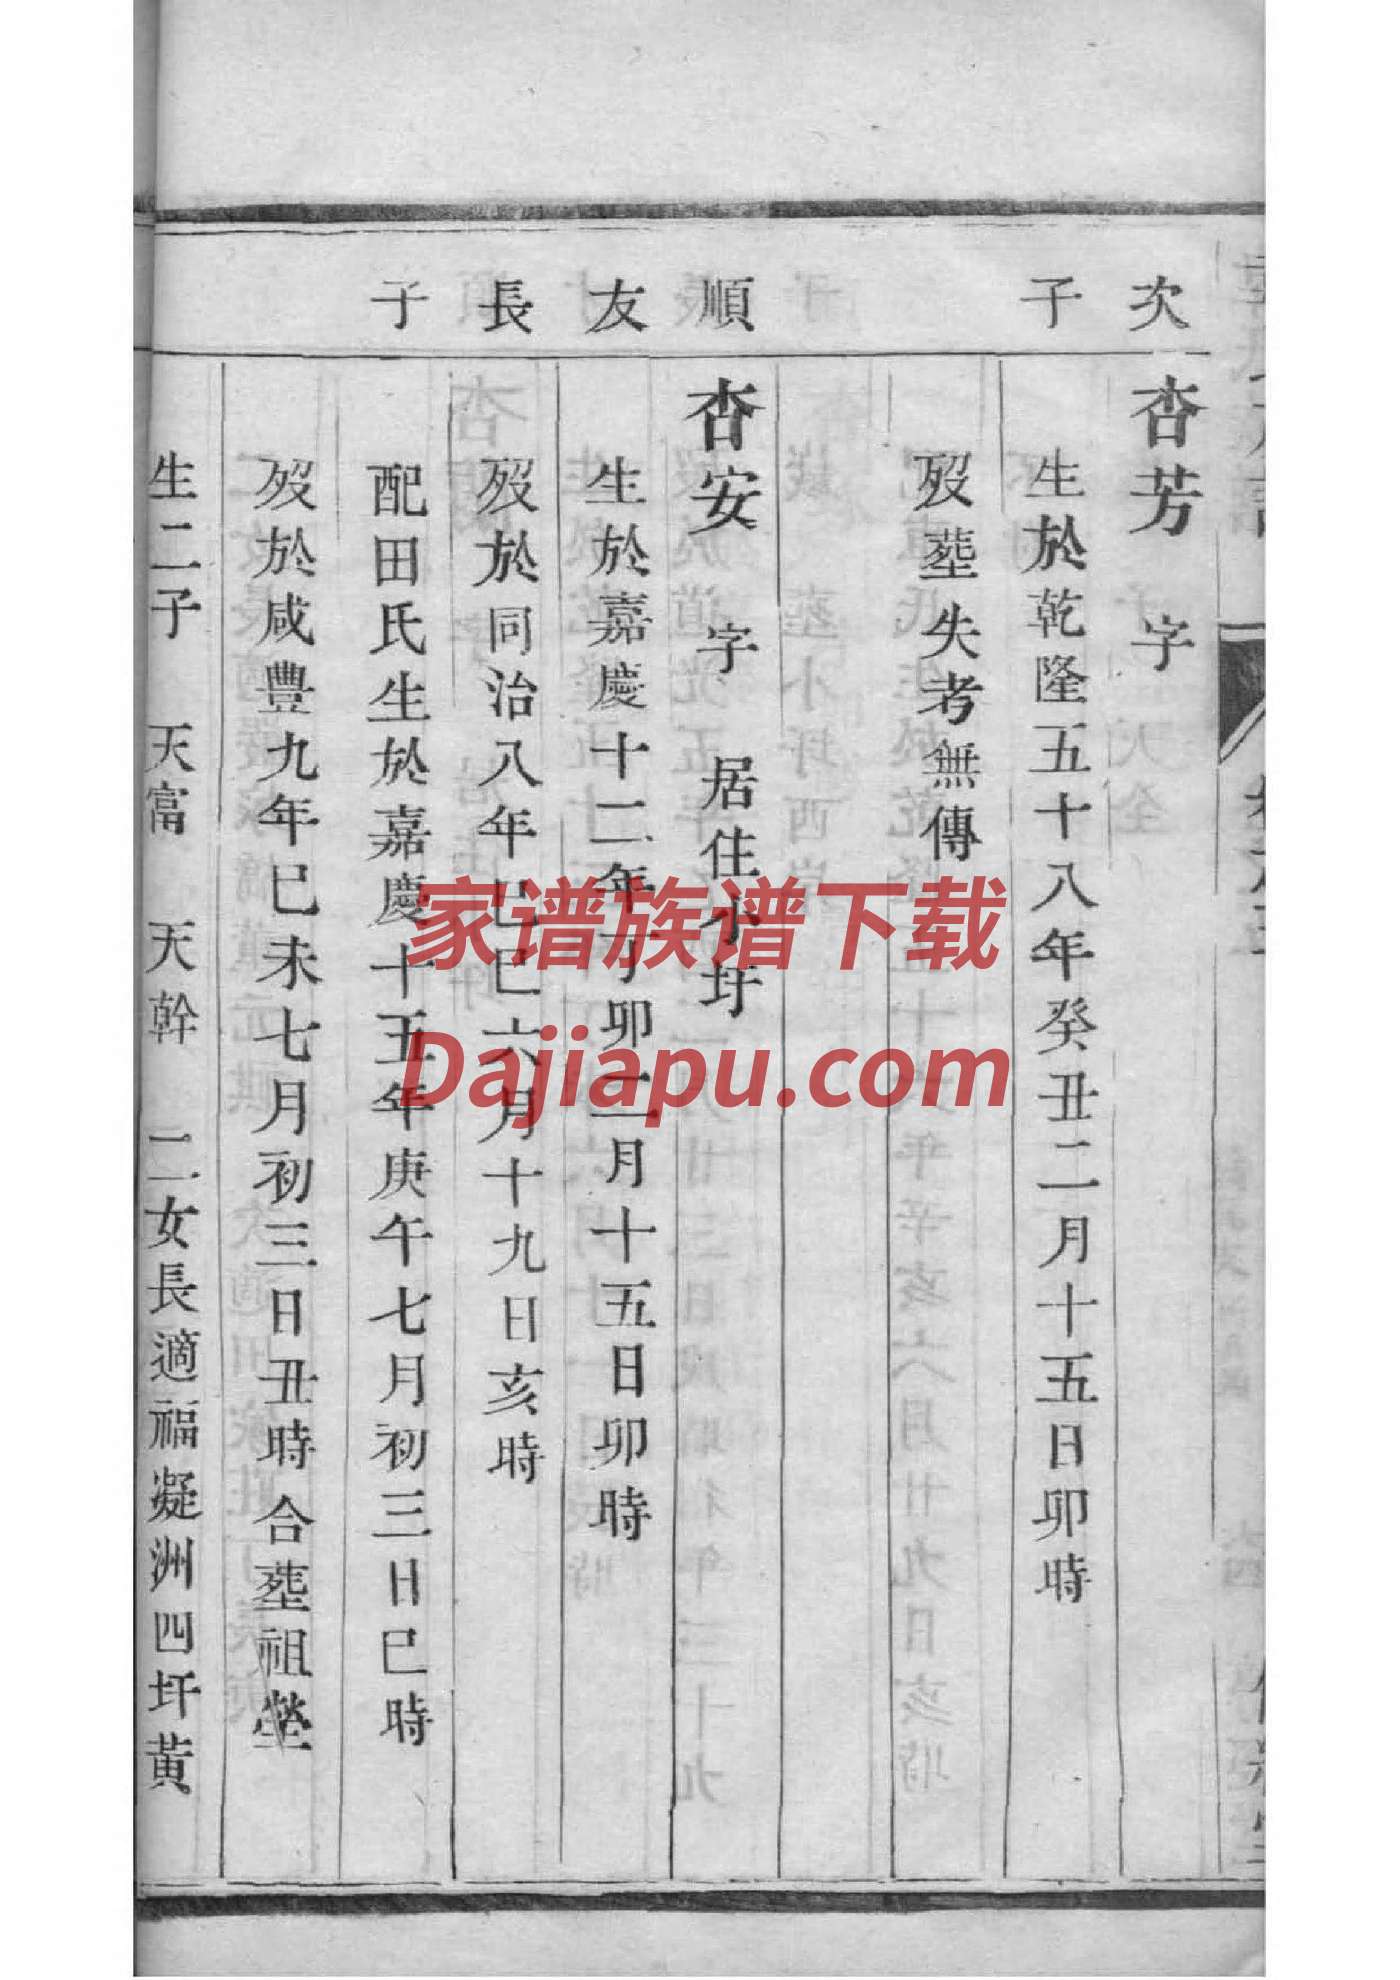 次子
杏芳 字
生於乾隆五十八年癸丑二月十五日卯時
歿塟失考無傳
順友長子
杏安 字 居住小圩
生於嘉慶十二年丁卯二月十五日卯時
歿於同治八年己巳六月十九日亥時
配田氏生於嘉慶十五年庚午七月初三日巳時
歿於咸豐九年己未七月初三日丑時合塟祖塋
生二子 天富 天幹 二女長適福凝洲四圩黃
家谱族谱下载
Dajiapu.com